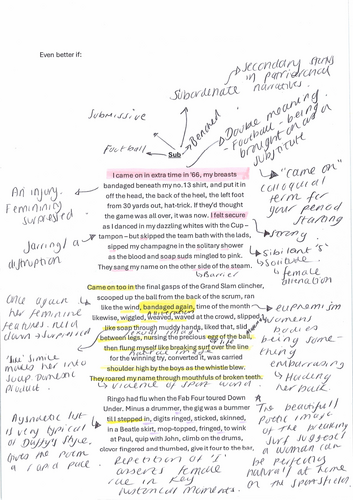 Even better if:
Secondary status
in patriarchal
narratives.
Subordinate
Submissive
Benched
Double meaning.
Football - being
brought on as a
substitute
Football
Sub
"came on"
colloquial
term for
your period
starting
I came on in extra time in '66, my breasts
bandaged beneath my no. 13 shirt, and put it in
off the head, the back of the heel, the left foot
from 30 yards out, hat-trick. If they'd thought
the game was all over, it was now. I felt secure
as I danced in my dazzling whites with the Cup –
tampon – but skipped the team bath with the lads,
sipped my champagne in the solitary shower
as the blood and soap suds mingled to pink.
They sang my name on the other side of the steam.
An injury.
Femininity
supressed
Jarring / a
disruption
strong
Sibilant 's'
Solitude
female
alienation
Barrier
Came on too in the final gasps of the Grand Slam clincher,
scooped up the ball from the back of the scrum, ran
like the wind, bandaged again, time of the month
likewise, wiggled, weaved, waved at the crowd, slipped
like soap through muddy hands, liked that, slid
between legs, nursing the precious egg of the ball,
then flung myself like breaking surf over the line
for the winning try, converted it, was carried
shoulder high by the boys as the whistle blew.
They roared my name through mouthfuls of broken teeth.
Alliteration
natural image
violence of sport
Once again
her feminine
features
supressed
simile
makes her into
soap Domestic
product
euphemism
womens
bodies
being some-
thing
embarrassing
Holding
her back
Asyndetic list
is very typical
of Duffy's style.
Gives the poem
a rapid pace.
The beautiful
poetic image
of the breaking
surf suggests
a woman can
be perfectly
natural at home
on the sportsfield
Ringo had flu when the Fab Four toured Down
Under. Minus a drummer, the gig was a bummer
till I stepped in, digits ringed, sticked, skinned,
in a Beatle skirt, mop-topped, fringed, to wink
at Paul, quip with John, climb on the drums,
clover fingered and thumbed, give it four to the bar,
Repetition of 'I'
female
role in key
historical moments.